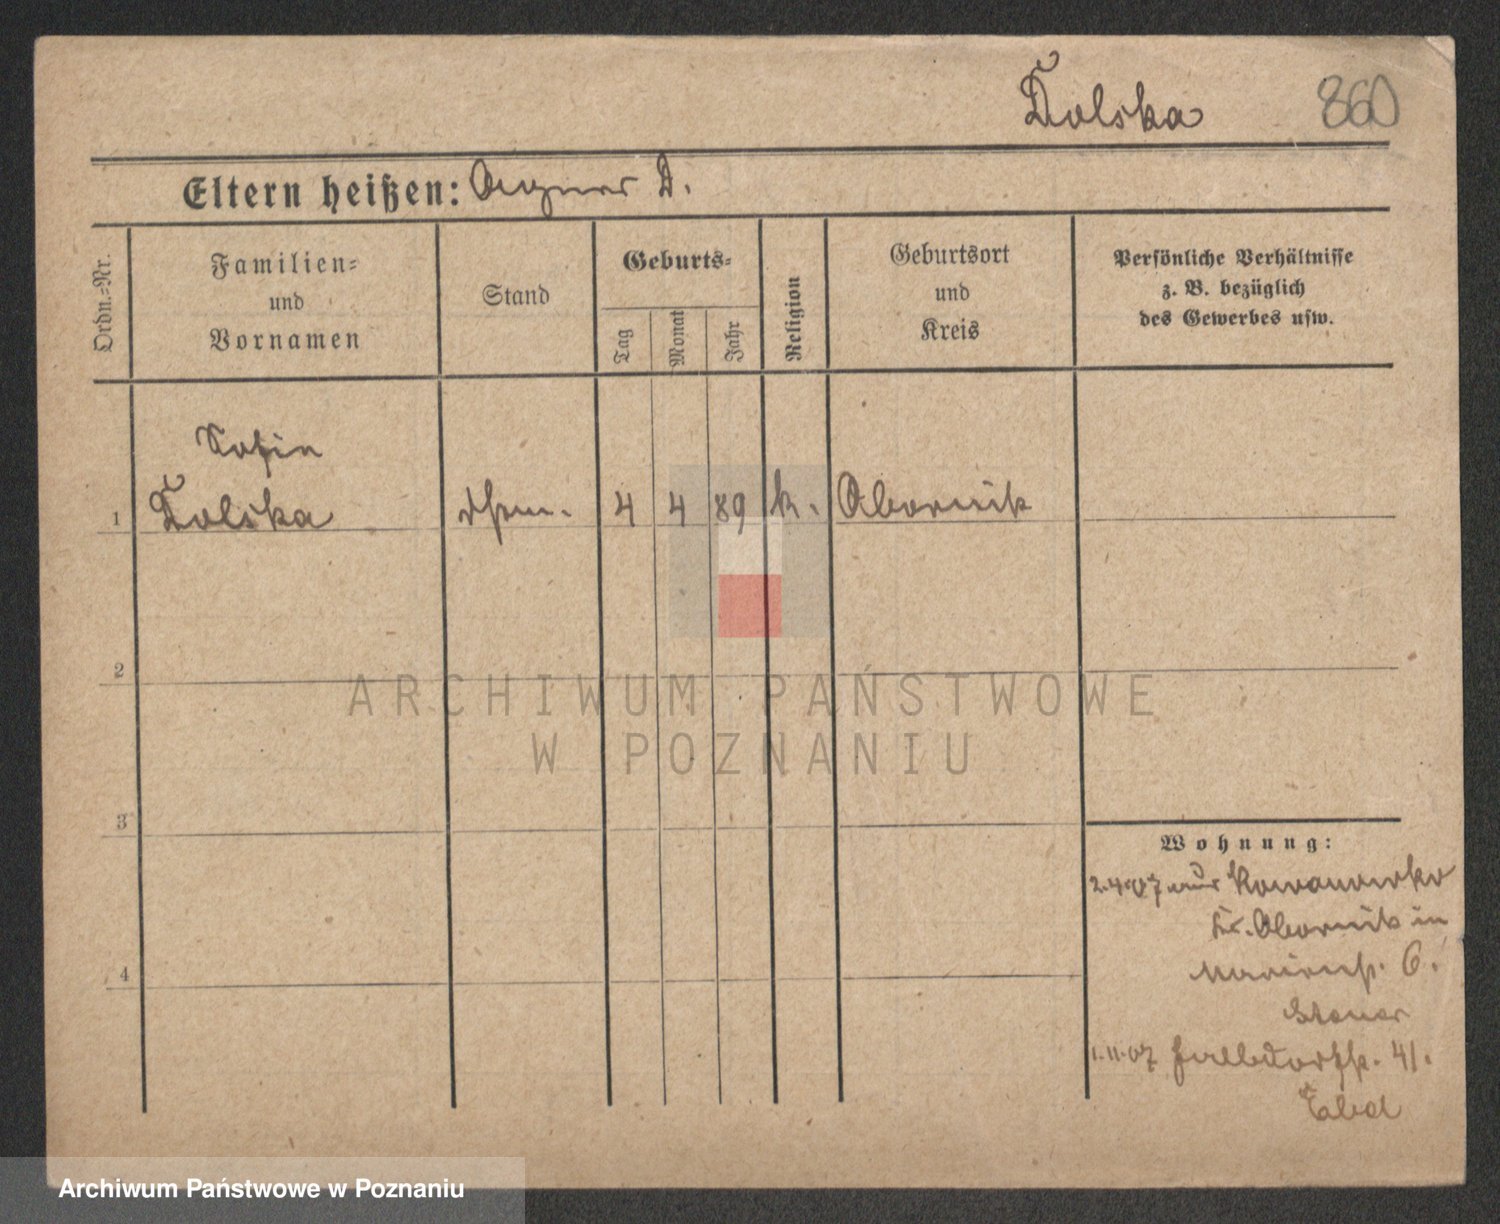 Dolska 860
Eltern heißen:
Ordn.=Nr.
Familien=
und
Vornamen
Stand
Geburts=
Tag
Monat
Jahr
Religion
Geburtsort
und
Kreis
Persönliche Verhältnisse
z. B. bezüglich
des Gewerbes usw.
Sofia
1 Dolska 4 4 89 k. Obornik
2
3
4
Wohnung:
2.4.07 aus Kowanowko
Kr. Obornik in
6.
1.11.07 41.
ARCHIWUM PAŃSTWOWE
W POZNANIU
Archiwum Państwowe w Poznaniu